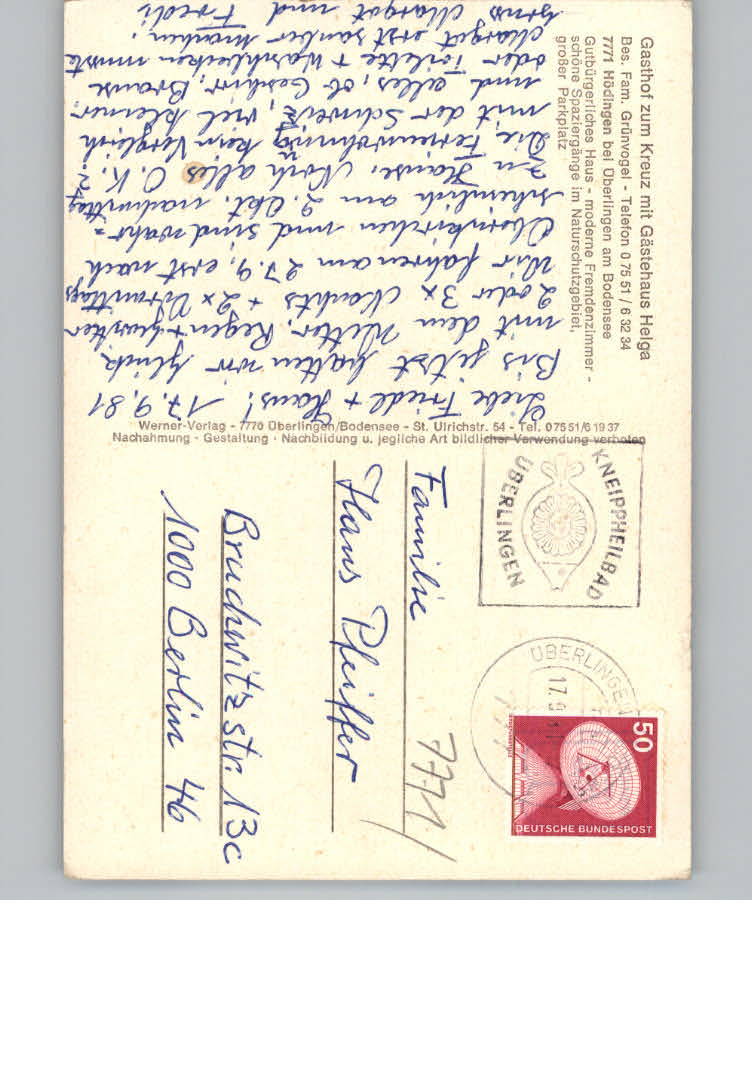 Gasthof zum Kreuz mit Gästehaus Helga
Bes. Fam. Grünvogel - Telefon 0 75 51 / 6 32 34
7771 Hödingen bei Überlingen am Bodensee
Gutbürgerliches Haus - moderne Fremdenzimmer -
schöne Spaziergänge im Naturschutzgebiet,
großer Parkplatz
Liebe Friedl + Hans! 17.9.81
Bis jetzt hatten wir Glück
mit dem Wetter, Regen + Gewitter
2 oder 3x Nachts + 2x Vormittags
Wir fahren am 27.9. erst nach
Obernkirchen und sind wahr=
scheinlich am 2. Okt. nachmittag
zu Hause. Noch alles O.K.?
Die Ferienwohnung kein Vergleich
mit der Schweiz, viel kleiner
und alles, ob Geschirr, Brause
oder Toilette + Waschbecken musste
Margot erst sauber machen!
Margot und Fredi
Werner-Verlag - 7770 Überlingen/Bodensee - St. Ulrichstr. 54 - Tel. 07551/61937
Nachahmung · Gestaltung · Nachbildung u. jegliche Art bildlicher Verwendung verboten
KNEIPPHEILBAD
ÜBERLINGEN
ÜBERLINGEN
17.9
50
DEUTSCHE BUNDESPOST
7771
Familie
Hans Pfeiffer
Bruchwitzstr. 13c
1000 Berlin 46